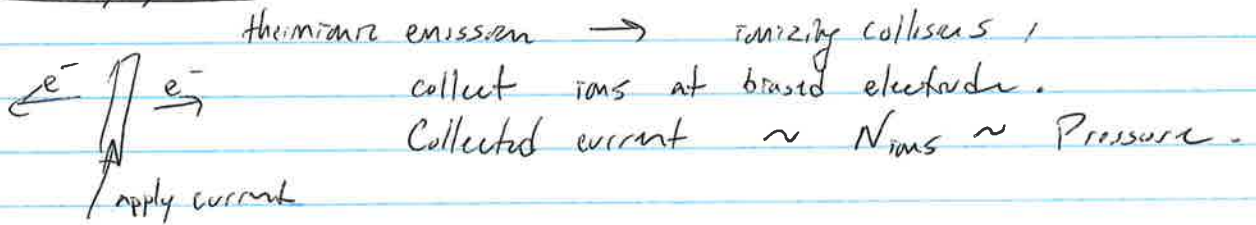 thermionic emission → ionizing collisions,
e⁻ e⁻ collect ions at biased electrode.
Collected current ~ N_ions ~ Pressure.
apply current